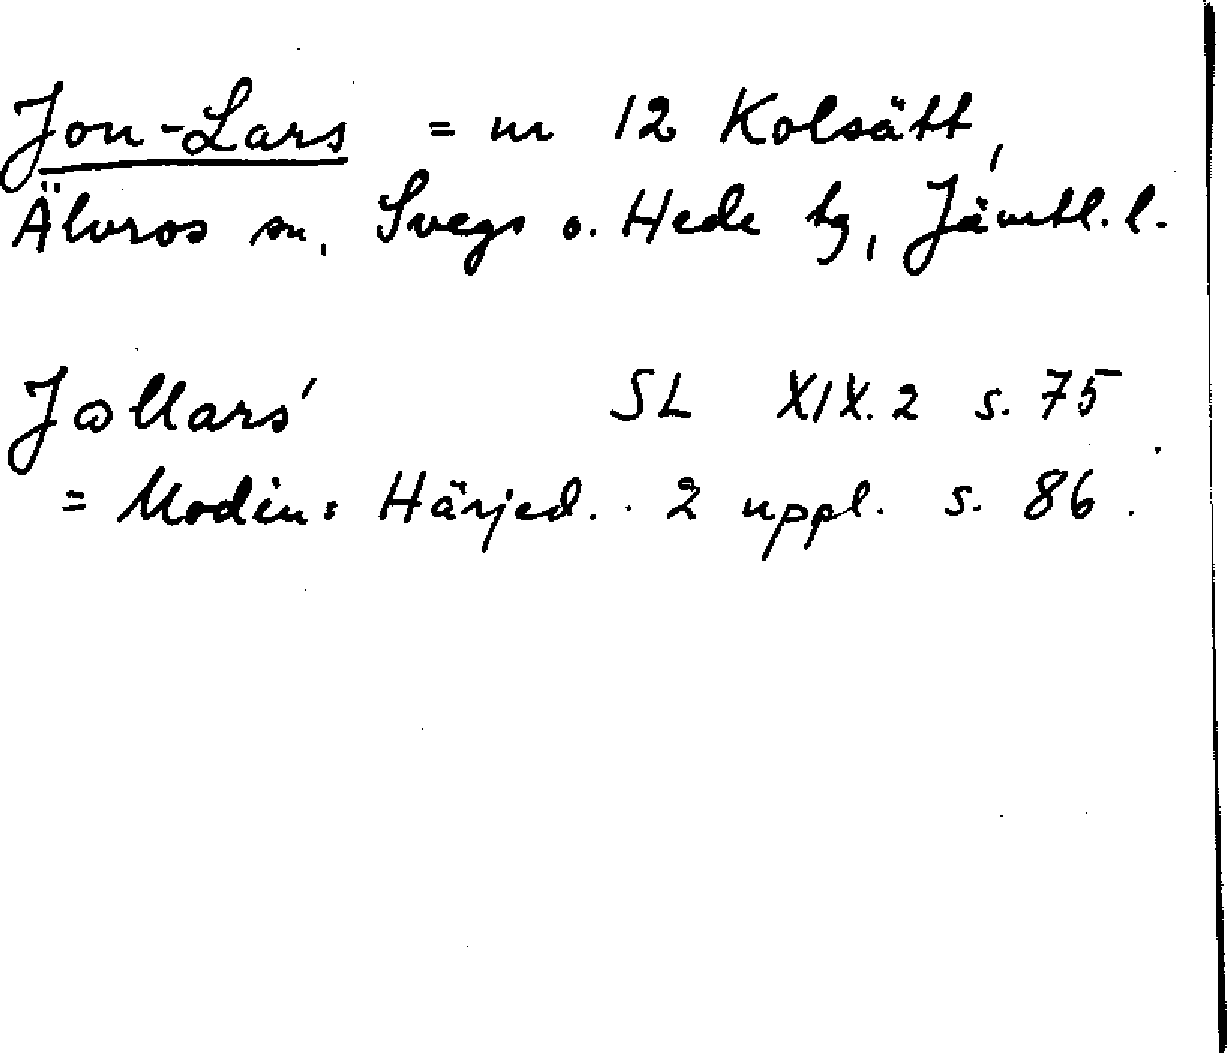 Jon-Lars = nr 12 Kolsätt,
Älvros sn, Svegs o. Hede tg, Jämtl. l.
Jɷllars' SL XIX. 2 s. 75
= Modin: Härjed. 2 uppl. s. 86.